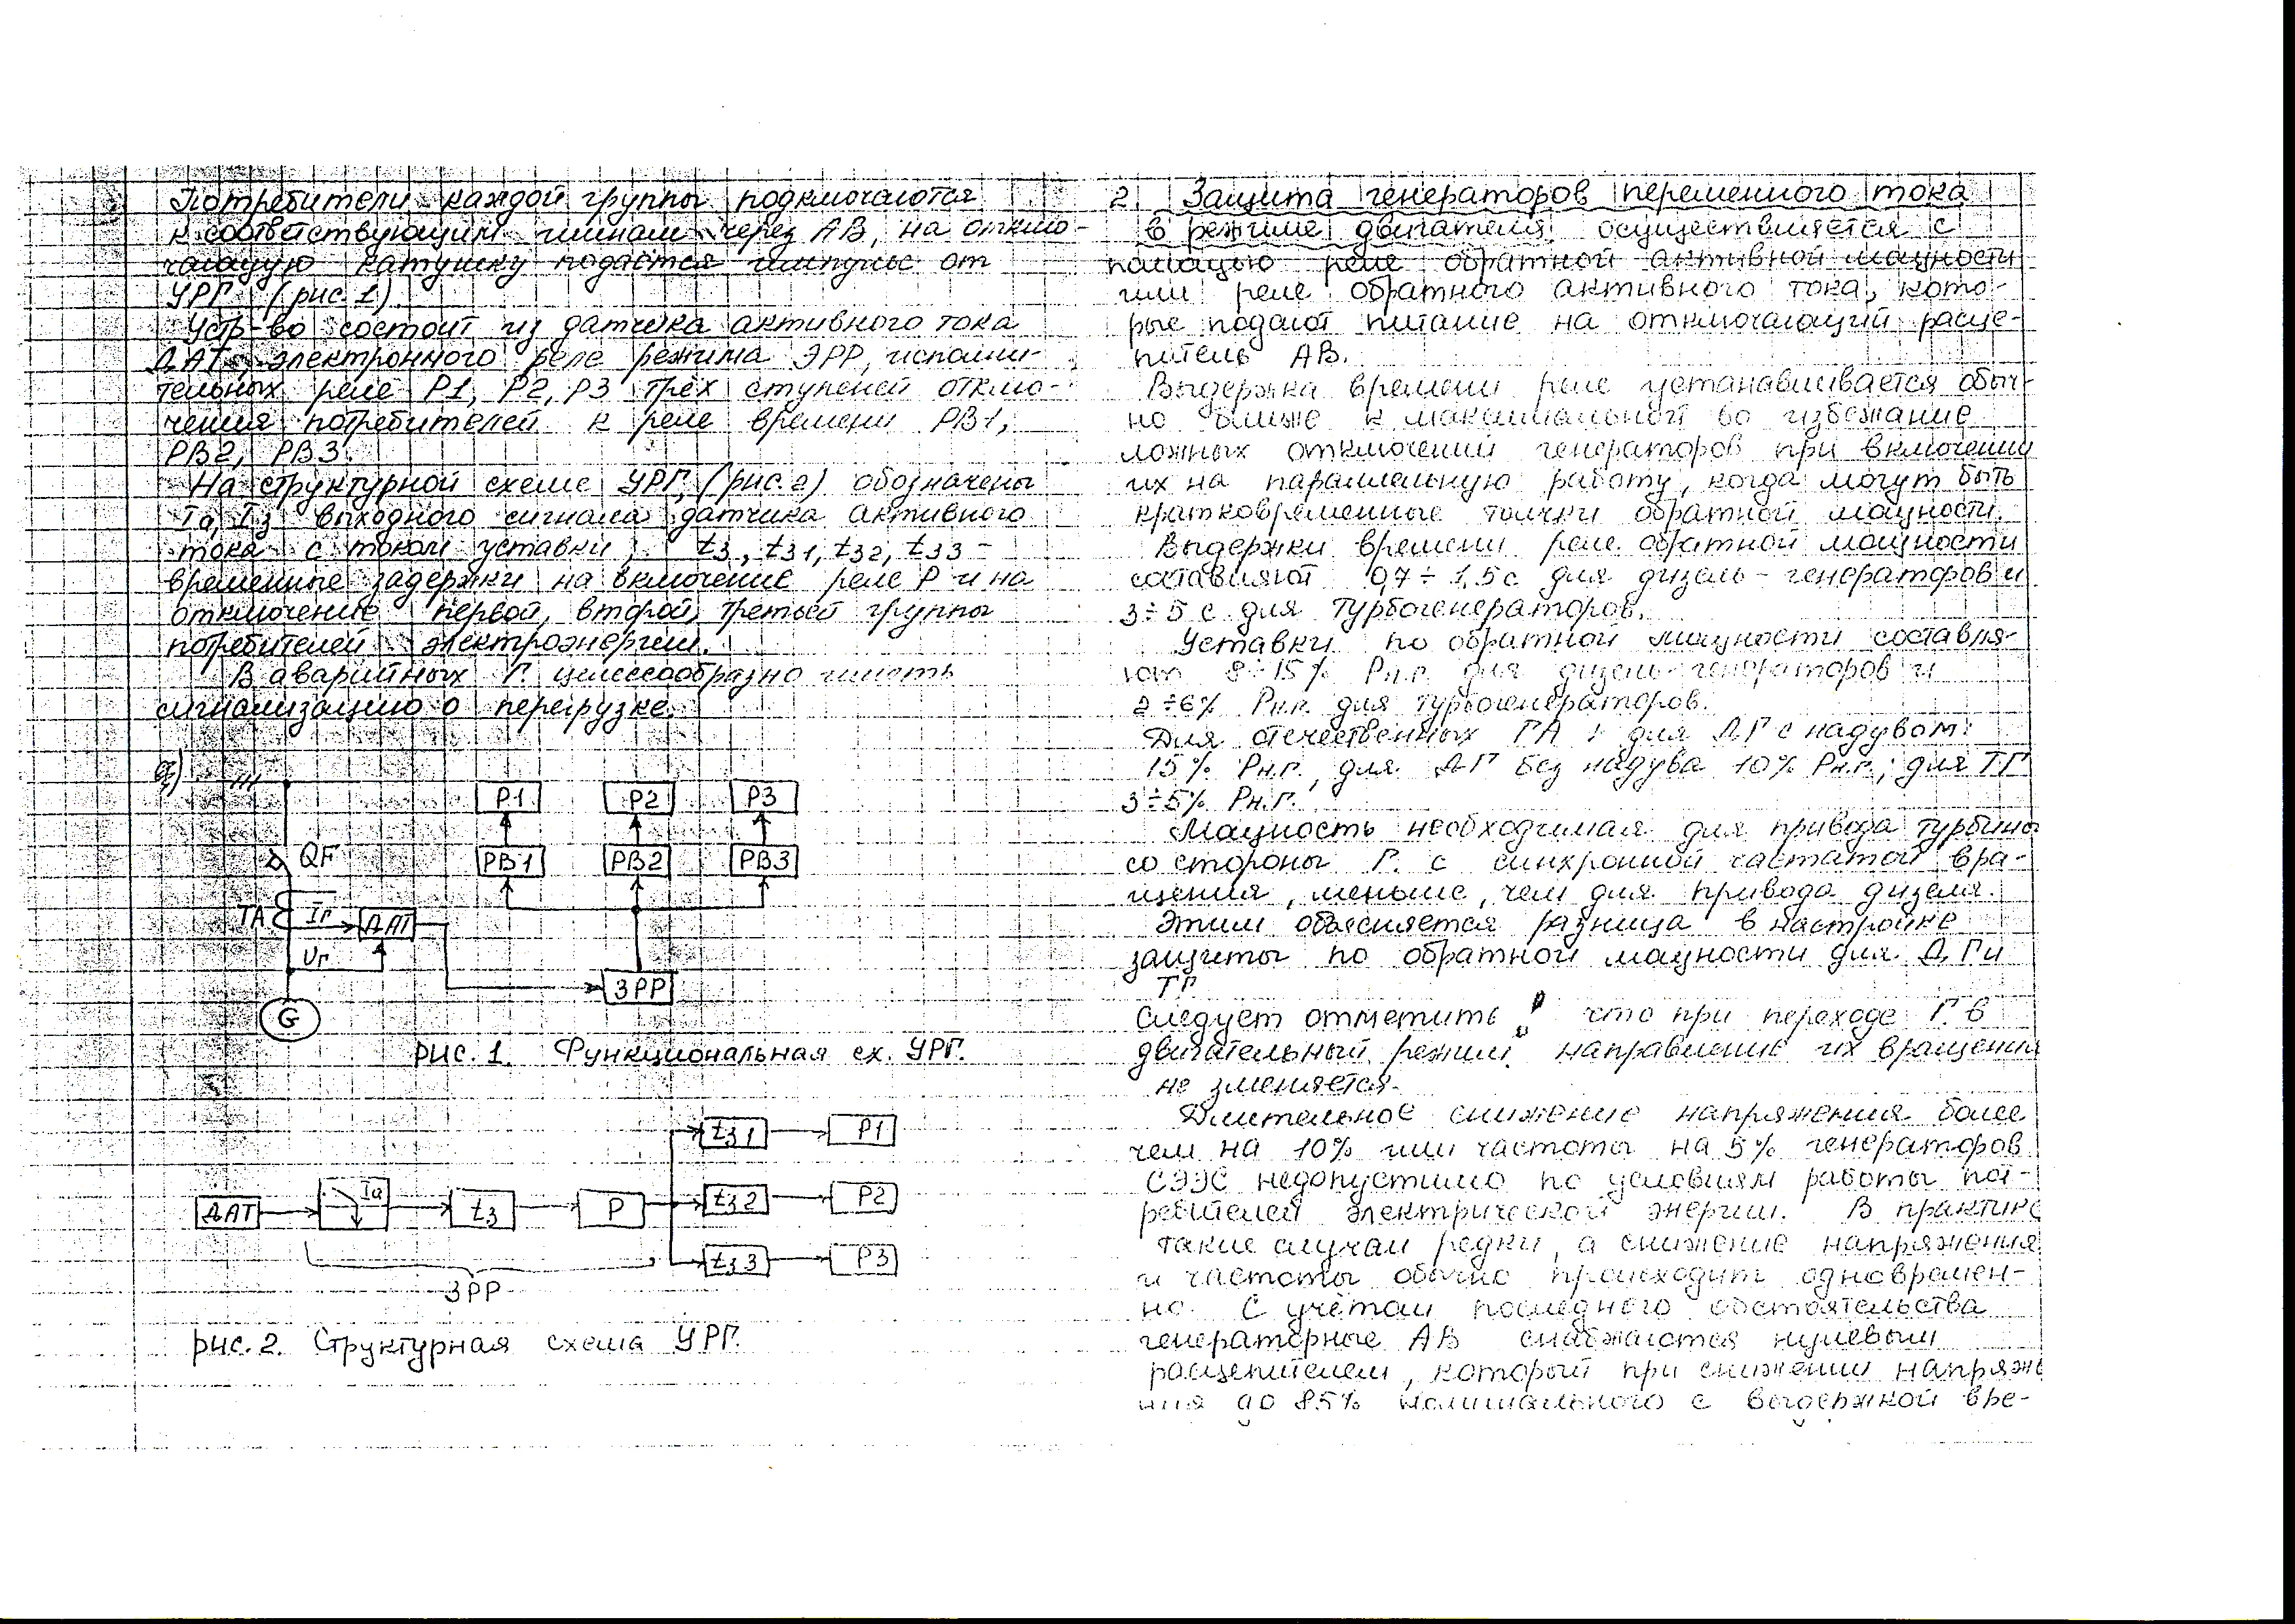 Потребители каждой группы подключаются
к соответствующим шинам через АВ, на отклю-
чающую катушку подаётся импульс от
УРГ (рис. 1)
Устр-во состоит из датчика активного тока
ДАТ, электронного реле режима ЭРР, исполни-
тельных реле Р1, Р2, Р3 трёх ступеней отклю-
чения потребителей к реле времени РВ1,
РВ2, РВ3.
На структурной схеме УРГ, (рис. 2) обозначены
Iа, Iз выходного сигнала датчика активного
тока с током уставки; tз, tз1, tз2, tз3 -
временные задержки на включение реле Р и на
отключение первой, второй, третьей группы
потребителей электроэнергии.
В аварийных Г. целесообразно иметь
сигнализацию о перегрузке.
а)
Р1 Р2 Р3
QF РВ1 РВ2 РВ3
ТА Iг ДАТ
Uг
ЭРР
G
рис. 1. Функциональная сх. УРГ.
tз1 Р1
ДАТ Iа tз Р tз2 Р2
tз3 Р3
ЭРР
рис. 2. Структурная схема УРГ.
2. Защита генераторов переменного тока
в режиме двигателя осуществляется с
помощью реле обратной активной мощности
или реле обратного активного тока, кото-
рые подают питание на отключающий расце-
питель АВ.
Выдержка времени реле устанавливается обыч-
но ближе к максимальной во избежание
ложных отключений генераторов при включении
их на параллельную работу, когда могут быть
кратковременные толчки обратной мощности.
Выдержки времени реле обратной мощности
составляют 0,7÷1,5с для дизель-генераторов и
3÷5 с для турбогенераторов.
Уставки по обратной мощности составля-
ют 8÷15% Рн.г. для дизель-генераторов и
2÷6% Рн.г. для турбогенераторов.
Для отечественных ГА: для ДГ с надувом:
15% Рн.г., для ДГ без надува 10% Рн.г.; для ТГ
3÷5% Рн.г.
Мощность необходимая для привода турбины
со стороны Г. с синхронной частатой вра-
щения, меньше, чем для привода дизеля.
Этим объясняется разница в настройке
защиты по обратной мощности для ДГ и
ТГ
Следует отметить, что при переходе Г. в
двигательный режим направление их вращения
не зменяется.
Длительное снижение напряжения более
чем на 10% или частоты на 5% генераторов
СЭЭС недопустимо по условиям работы пот-
ребителей электрической энергии. В практике
такие случаи редки, а снижение напряжения
и частоты обычно происходит одновремен-
но. С учётом последнего обстоятельства
генераторные АВ снабжаются нулевым
расцепителем, который при снижении напряже
ния до 85% номинального с выдержкой вре-